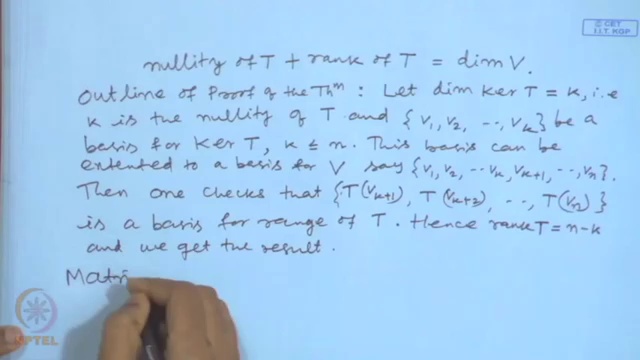 © CET
I.I.T. KGP
nullity of T + rank of T = dim V.
Outline of Proof of the Thm : Let dim Ker T = k, i.e
k is the nullity of T and {v1, v2, ..., vk} be a
basis for Ker T, k ≤ n. This basis can be
extented to a basis for V say {v1, v2, ... vk, vk+1, ..., vn}.
Then one checks that {T(vk+1), T(vk+2), ..., T(vn)}
is a basis for range of T. Hence rank T = n-k
and we get the result.
Matri
NPTEL